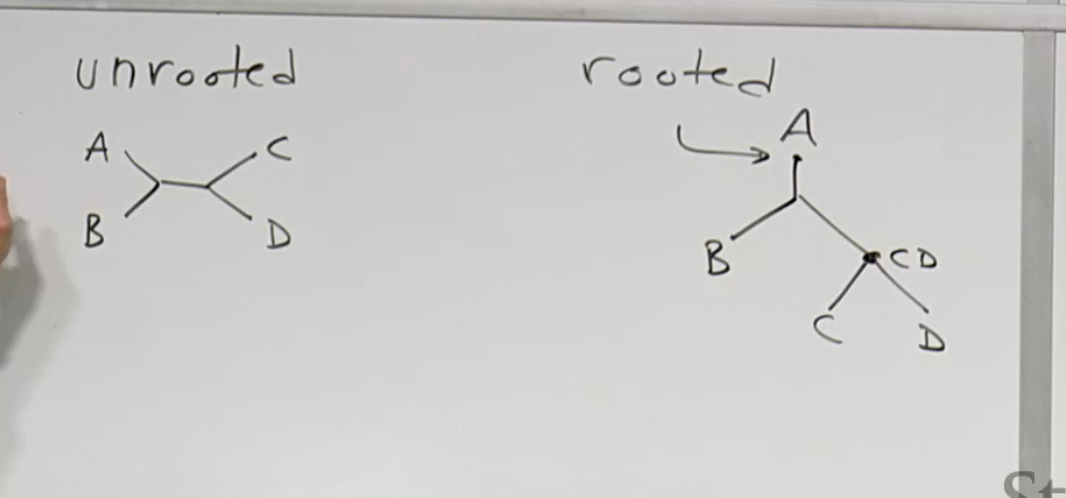 unrooted
A C
B D
rooted
A
B CD
C D
St